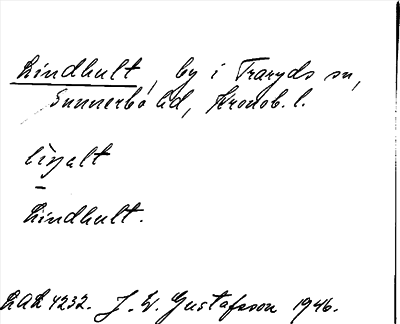 Lindhult, by i Traryds sn,
Sunnerbo hd, Kronob. l.
Lindhult.
LAL 4232. J. W. Gustafsson 1946.